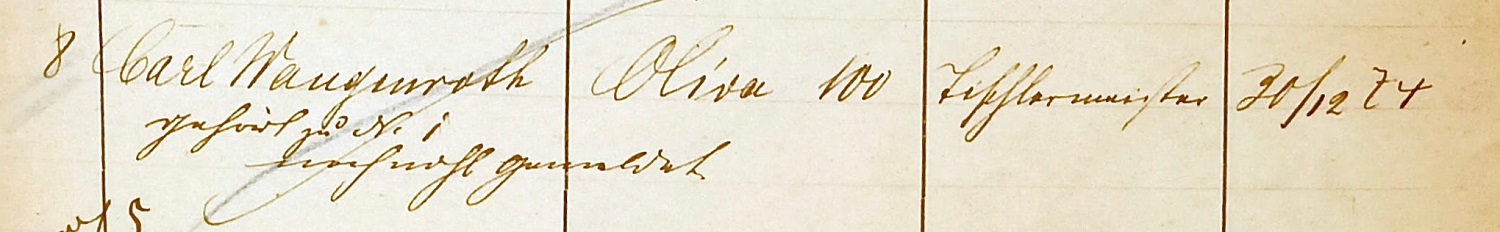 8 Carl Wangenroth Oliva 100 Tischlermeister 30/12 74
gehört zu N. 1
nochmahl gemeldet
5